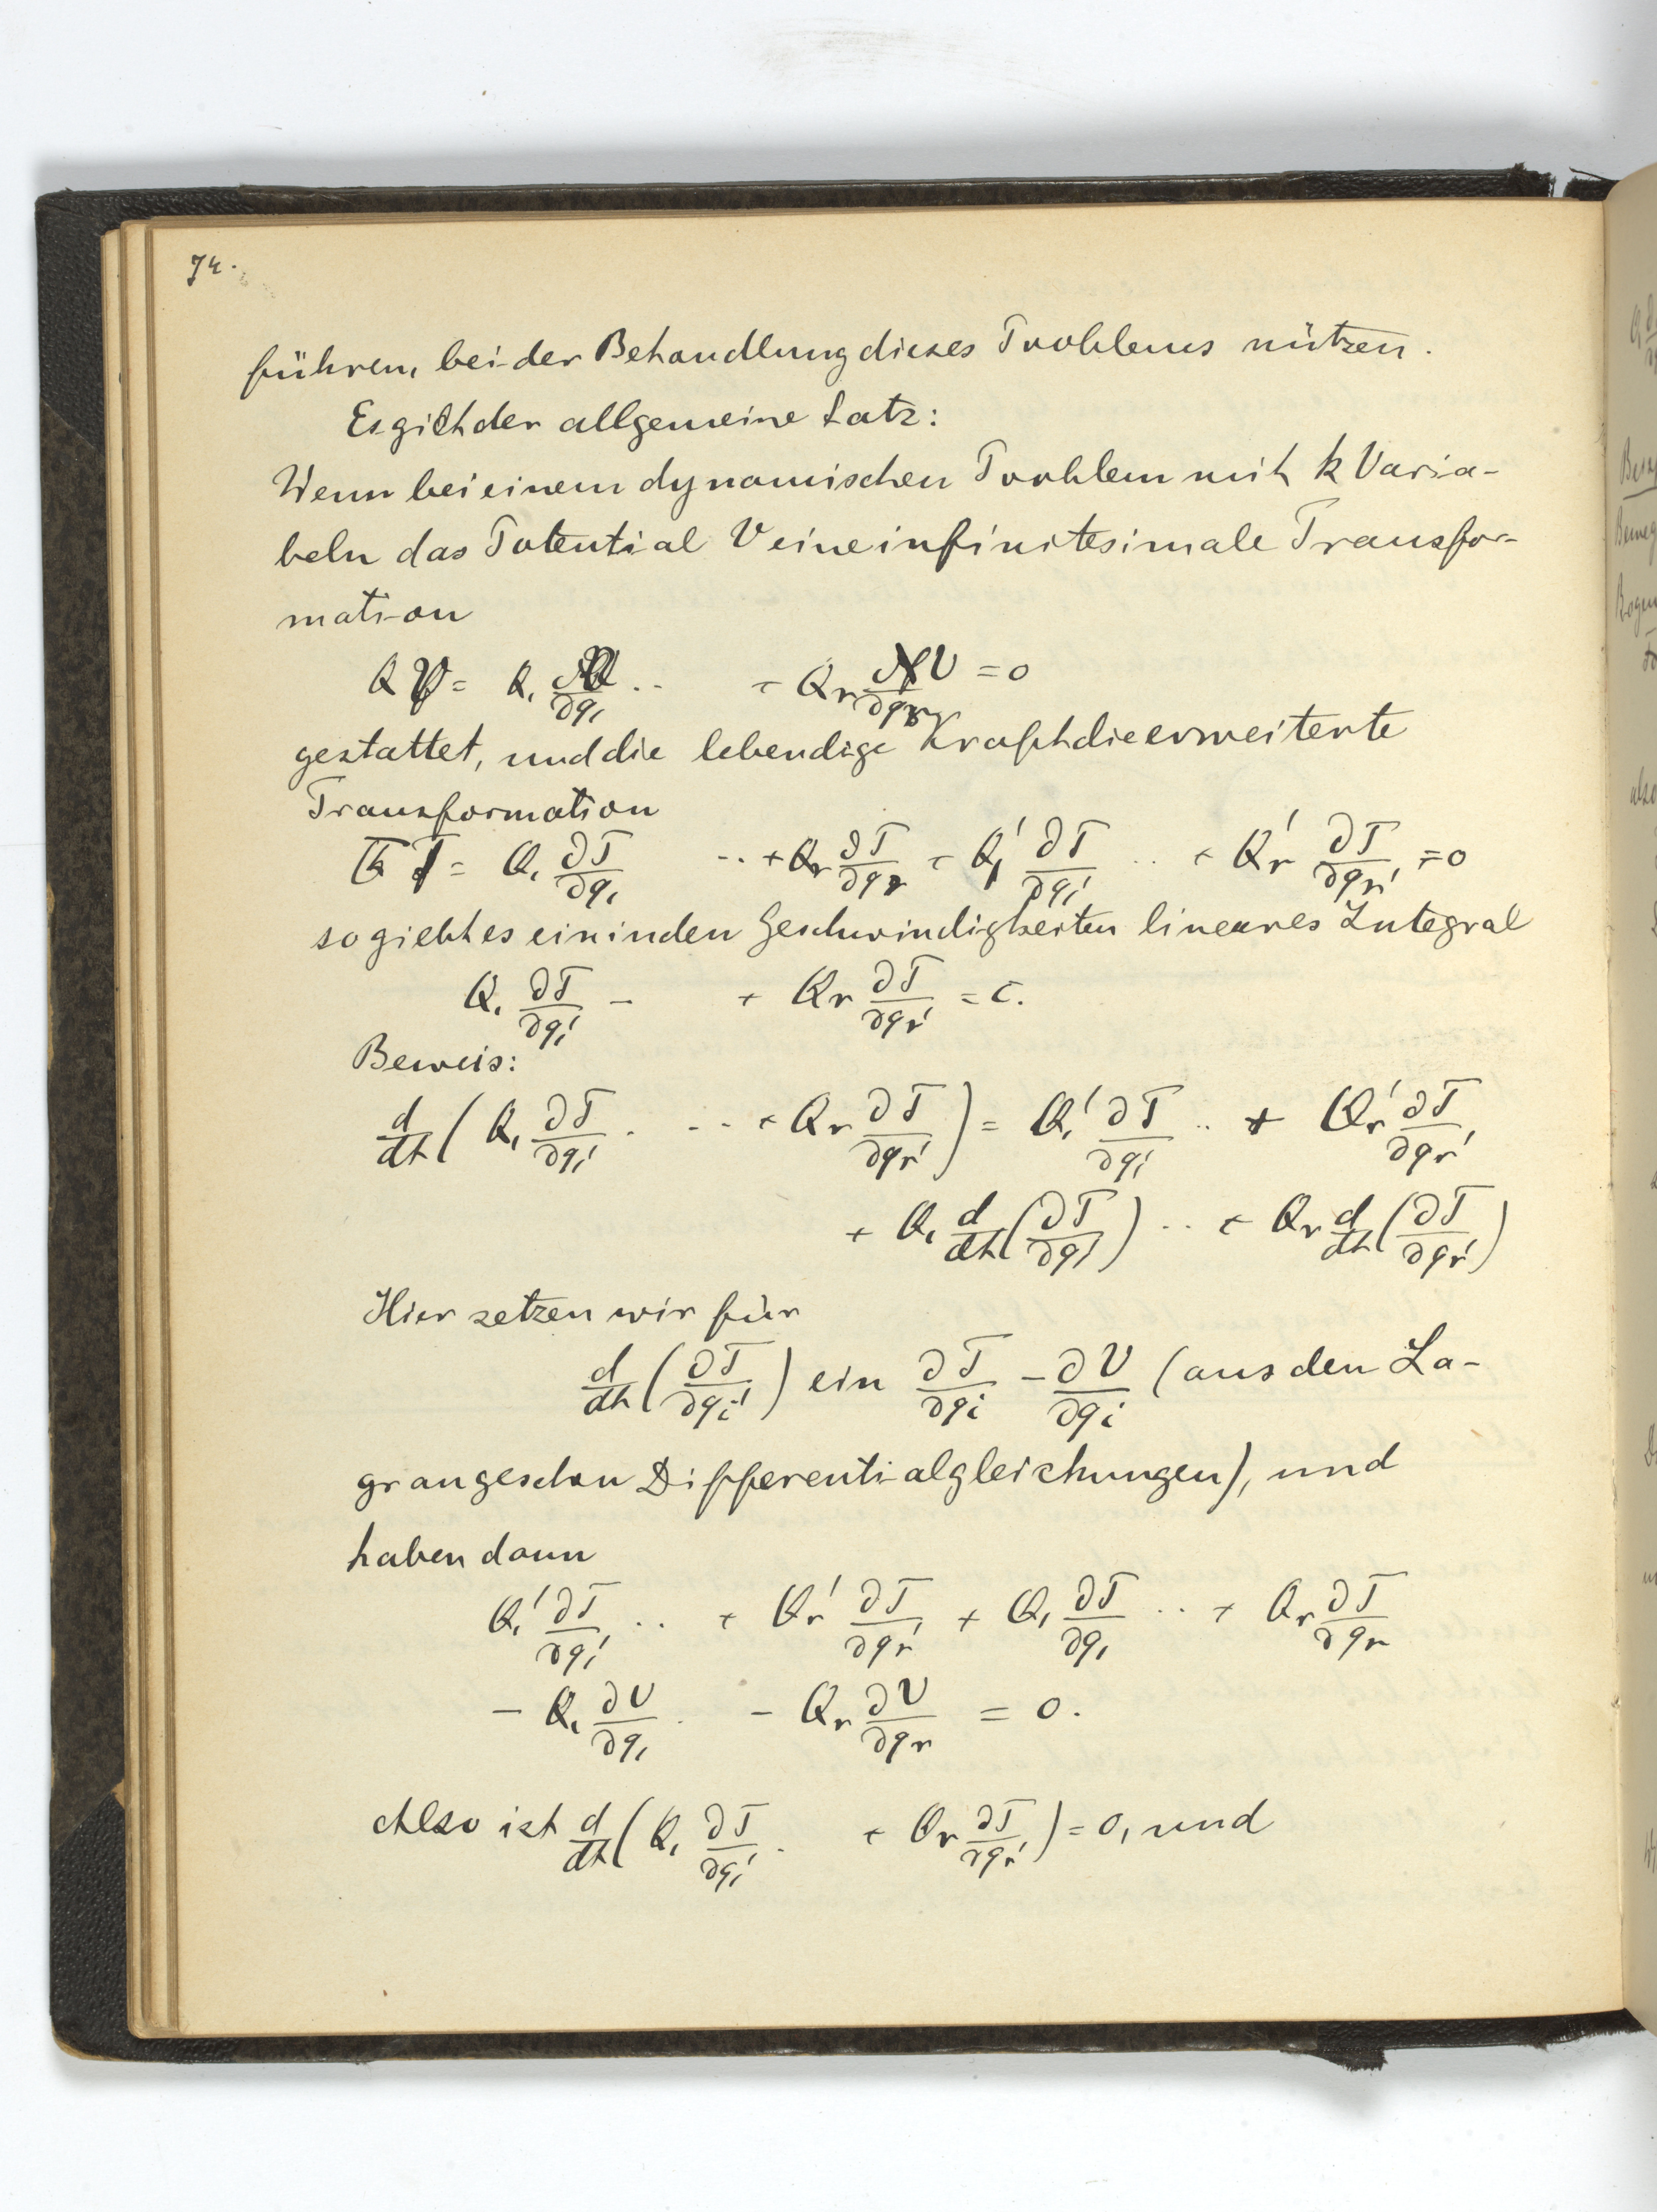 74.
führen, bei der Behandlung dieses Problems nützen.
Es gilt der allgemeine Satz:
Wenn bei einem dynamischen Problem mit k Varia-
beln das Potential V eine infinitesimale Transfor-
mation
Q V = Q₁ ∂V/∂q₁ .. + Qr ∂V/∂qr = 0
gestattet, und die lebendige Kraft die erweiterte
Transformation
T = Q₁ ∂T/∂q₁ .. + Qr ∂T/∂qr + Q₁' ∂T/∂q₁' .. + Qr' ∂T/∂qr' = 0
so giebt es ein in den Geschwindigkeiten lineares Integral
Q₁ ∂T/∂q₁' - + Qr ∂T/∂qr' = c.
Beweis:
d/dt ( Q₁ ∂T/∂q₁' . .. + Qr ∂T/∂qr' ) = Q₁' ∂T/∂q₁' .. + Qr' ∂T/∂qr'
+ Q₁ d/dt (∂T/∂q₁') .. + Qr d/dt (∂T/∂qr')
Hier setzen wir für
d/dt (∂T/∂qi') ein ∂T/∂qi - ∂V/∂qi (aus den La-
grangeschen Differentialgleichungen), und
haben dann
Q₁' ∂T/∂q₁' .. + Qr' ∂T/∂qr' + Q₁ ∂T/∂q₁ .. + Qr ∂T/∂qr
- Q₁ ∂V/∂q₁ . - Qr ∂V/∂qr = 0.
Also ist d/dt ( Q₁ ∂T/∂q₁' . + Qr ∂T/∂qr' ) = 0, und